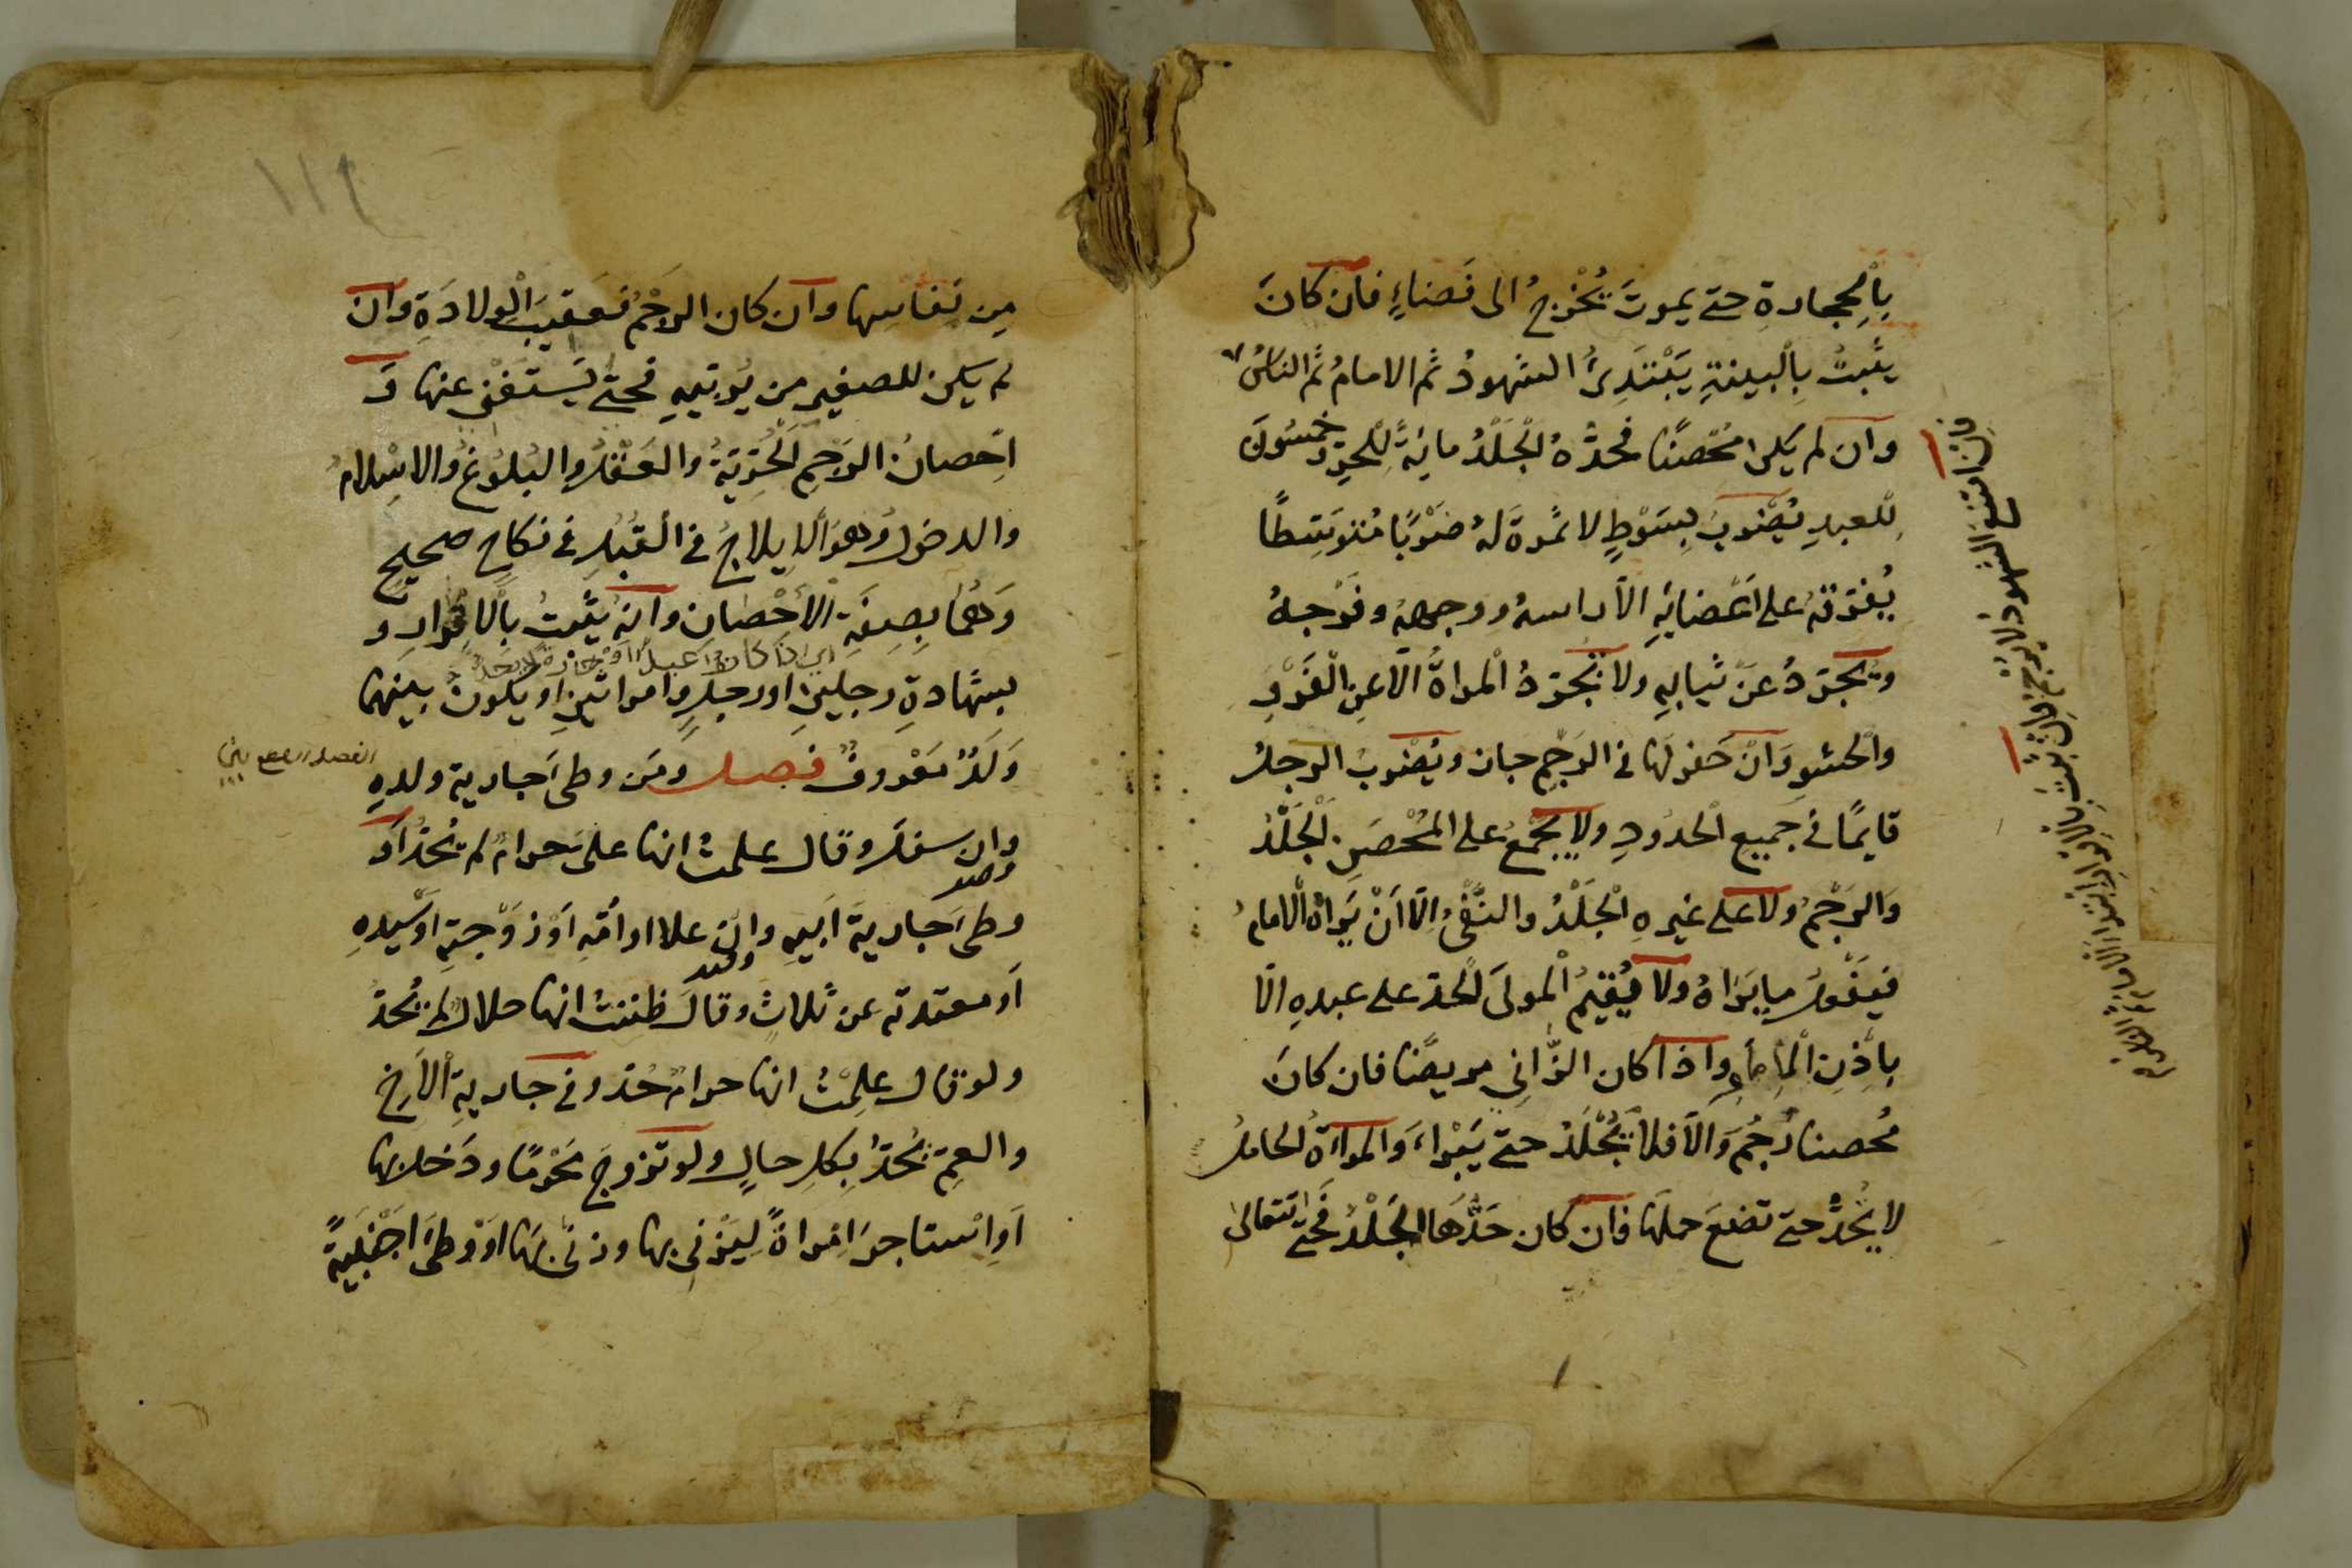 بِالْحِجارةِ حتى يموتَ يُخْرَجُ الى فَضاءٍ فان كانَ
يثبتُ بِالْبينةِ يَبْتَدِئُ الشهودُ ثم الامامُ ثم الناسُ
وان لم يكن مُحْصَنًا فحدُّهُ الْجَلْدُ مائةً لِلْحرِّ وخمسُونَ
لِلعبدِ يُضْرَبُ بِسَوْطٍ لا ثمرةَ لهُ ضَرْبًا مُتَوَسِّطًا
يُفَرِّقهُ على اَعْضائِهِ الا راسهُ ووجههُ وفَرْجهُ
ويُجَرَّدُ عَنْ ثيابهِ ولا تُجَرَّدُ المراةُ الا عنِ الْفَرْوِ
والْحشوِ وَانْ حَفر لَها فى الرَجْمِ جاز ويُضْرَبُ الرجلُ
قايمًا فى جَميعِ الْحدُودِ ولا يُجْمَعُ على المُحْصَنِ الْجَلْدُ
وَالرَجْمُ ولا على غيرهِ الْجَلْدُ والنَّفْىُ الّا اَنْ يَراهُ الامامُ
فيَفْعَلُ ما يَراهُ ولا يُقيمُ الْمولَى الْحدّ على عبدهِ الّا
باِذْنِ الْامامِ واذا كان الزّانى مريضًا فان كانَ
مُحصنا رُجِمَ وَالّا فلا يُجْلَدُ حتى يَبْراءَ وَالمراةُ الحاملُ
لا تُحدُّ حتى تضعَ حملَها فان كان حَدُّهَا الجَلْدُ فحَتى تتعالى
فان امتنع الشهود لا يرجم فان ثبت بالاقرار ابتدأ الامام ثم الناس
١١٤
مِن نِفاسِها وان كان الرَجْمُ فعَقيبَ الْولادَةِ وان
لم يكن للصغيرِ من يُربّيهِ فحتى يَستَغْنِى عنها وَ
اِحْصانُ الرَجْمِ الْحُرِّيّةُ والعَقْلُ والبُلوغُ والاسلامُ
والدخولُ وهوَ الايلاجُ فى القُبُلِ فى نكاحٍ صحيحٍ
وَهُمَا بِصِفَةِ الاحْصانِ وانهُ يثبتُ بِالاقرارِ و
بشهادةِ رجلينِ او رجلٍ وامراتينِ او يكونُ بينهما
وَلَدٌ مَعْروفٌ فصل ومَن وطى جارية ولدهِ
وان سفلَ وقال علمتُ انها علىَّ حرامٌ لم يُحَدّ اَو
وطى جارية اَبيهِ وان علا او امّهِ اَوْ زوْجتهِ اَوْ سَيّدهِ
اَو معتدته عن ثلاثٍ وقالَ ظننتُ انها حلالٌ لم يُحدّ
ولو قال علِمْتُ انها حرامٌ حُدّ وفى جاريةِ الْاخِ
والعمِّ يُحدُّ بِكلِّ حالٍ ولو تزوجَ مَحْرمًا ودخل بها
اَو اِسْتاجرَ امراةً لِيَزْنى بها وزنى بها اَوْ وطى اجْنبيةً